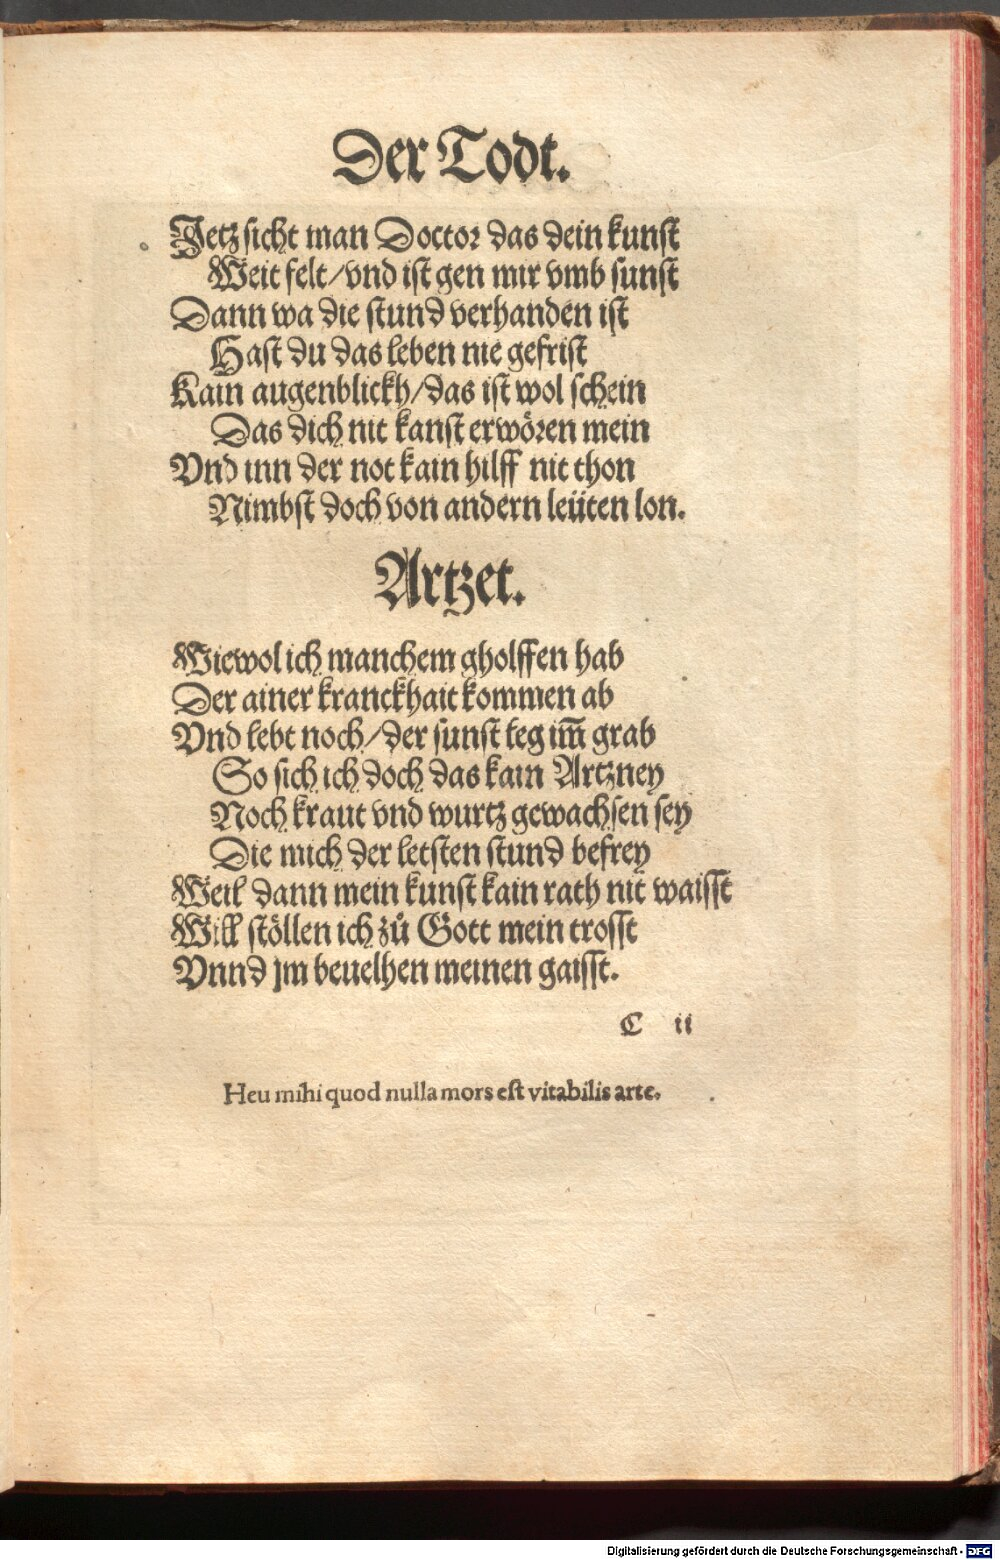 Der Todt.
Jetz sicht man Doctor das dein kunst
Weit felt/vnd ist gen mir vmb sunst
Dann wa die stund verhanden ist
Hast du das leben nie gefrist
Kain augenblickh/das ist wol schein
Das dich nit kanst erwören mein
Vnd inn der not kain hilff nit thon
Nimbst doch von andern leüten lon.
Artzet.
Wiewol ich manchem gholffen hab
Der ainer kranckhait kommen ab
Vnd lebt noch/der sunst leg im̅ grab
So sich ich doch das kain Artzney
Noch kraut vnd wurtz gewachsen sey
Die mich der letsten stund befrey
Weil dann mein kunst kain rath nit waisst
Will stöllen ich zů Gott mein trosst
Vnnd jm beuelhen meinen gaisst.
C ii
Heu mihi quod nulla mors est vitabilis arte.
Digitalisierung gefördert durch die Deutsche Forschungsgemeinschaft - DFG